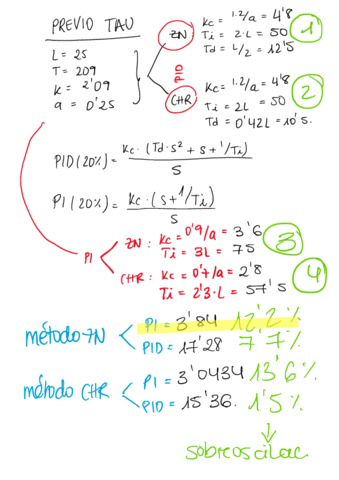 PREVIO TAU
L = 25
T = 209
K = 2'09
a = 0'25
PID
ZN
Kc = 1.2/a = 4'8
Ti = 2·L = 50
Td = L/2 = 12'5
1
CHR
Kc = 1.2/a = 4'8
Ti = 2L = 50
Td = 0'42L = 10's.
2
PID (20%) = Kc · (Td·s² + s + 1/Ti) / S
PI (20%) = Kc · (S + 1/Ti) / S
PI
ZN : Kc = 0'9/a = 3'6
Ti = 3L = 75
3
CHR : Kc = 0'7/a = 2'8
Ti = 2'3·L = 57's
4
método ZN
PI = 3'84 12'2%
PID = 17'28 7'7%
método CHR
PI = 3'0434 13'6%
PID = 15'36. 1'5%
sobreoscilac